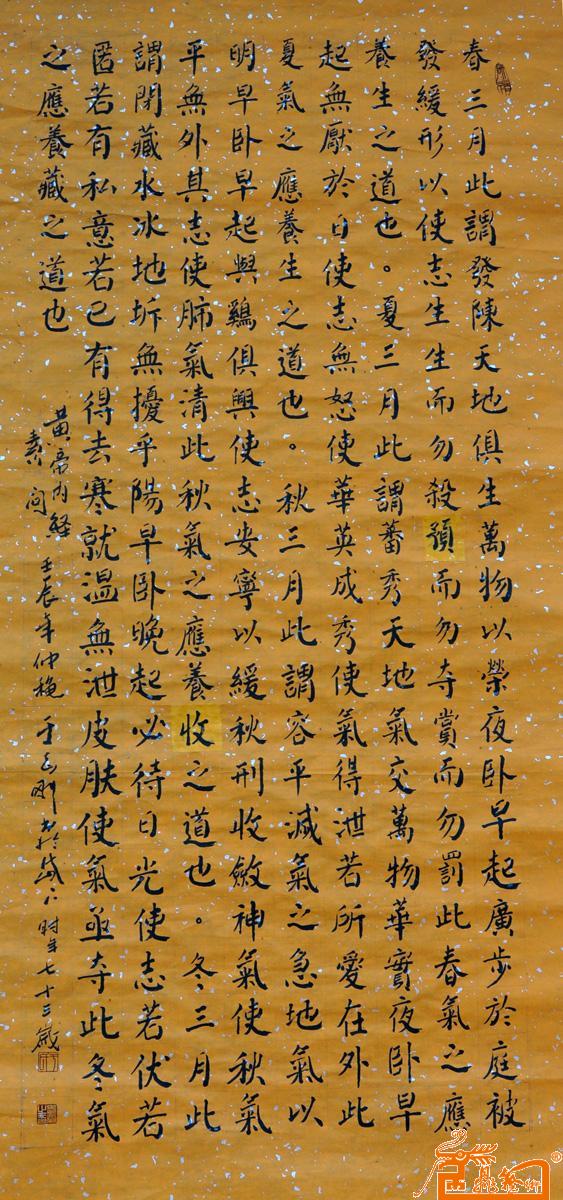 春三月此謂發陳天地俱生萬物以榮夜卧早起廣步於庭被
發緩形以使志生生而勿殺預而勿夺賞而勿罰此春氣之應
養生之道也。夏三月此謂蕃秀天地氣交萬物華實夜卧早
起無厭於日使志無怒使華英成秀使氣得泄若所愛在外此
夏氣之應養生之道也。秋三月此謂容平減氣之急地氣以
明早卧早起與鷄俱興使志安寧以緩秋刑收斂神氣使秋氣
平無外其志使肺氣清此秋氣之應養收之道也。冬三月此
謂閉藏水冰地坼無擾乎陽早卧晚起必待日光使志若伏若
匿若有私意若已有得去寒就温無泄皮膚使氣亟夺此冬氣
之應養藏之道也
黄帝内經
素问
壬辰年仲穐 王 书於岱下 时年七十三歲